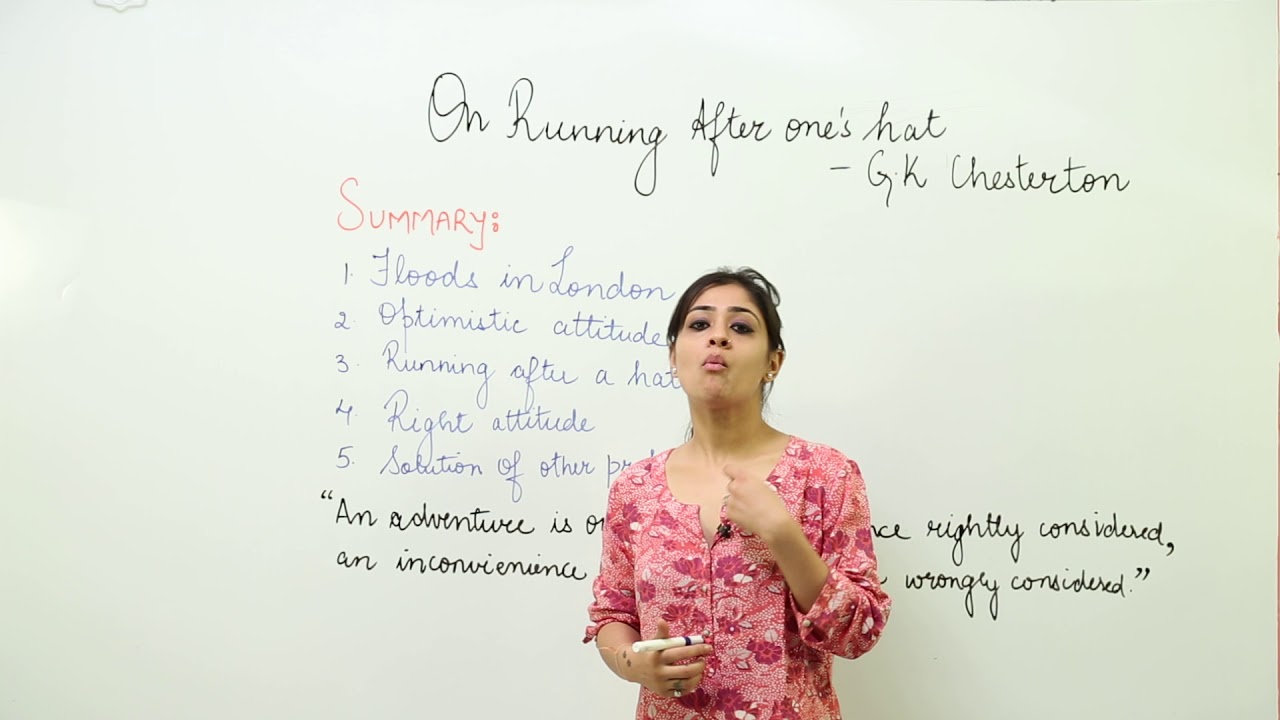 On Running After one's hat
- G.K Chesterton
SUMMARY:
1. Floods in London
2. Optimistic attitude
3. Running after a hat
4. Right attitude
5. Solution of other
"An adventure is rightly considered,
an inconvienience wrongly considered."